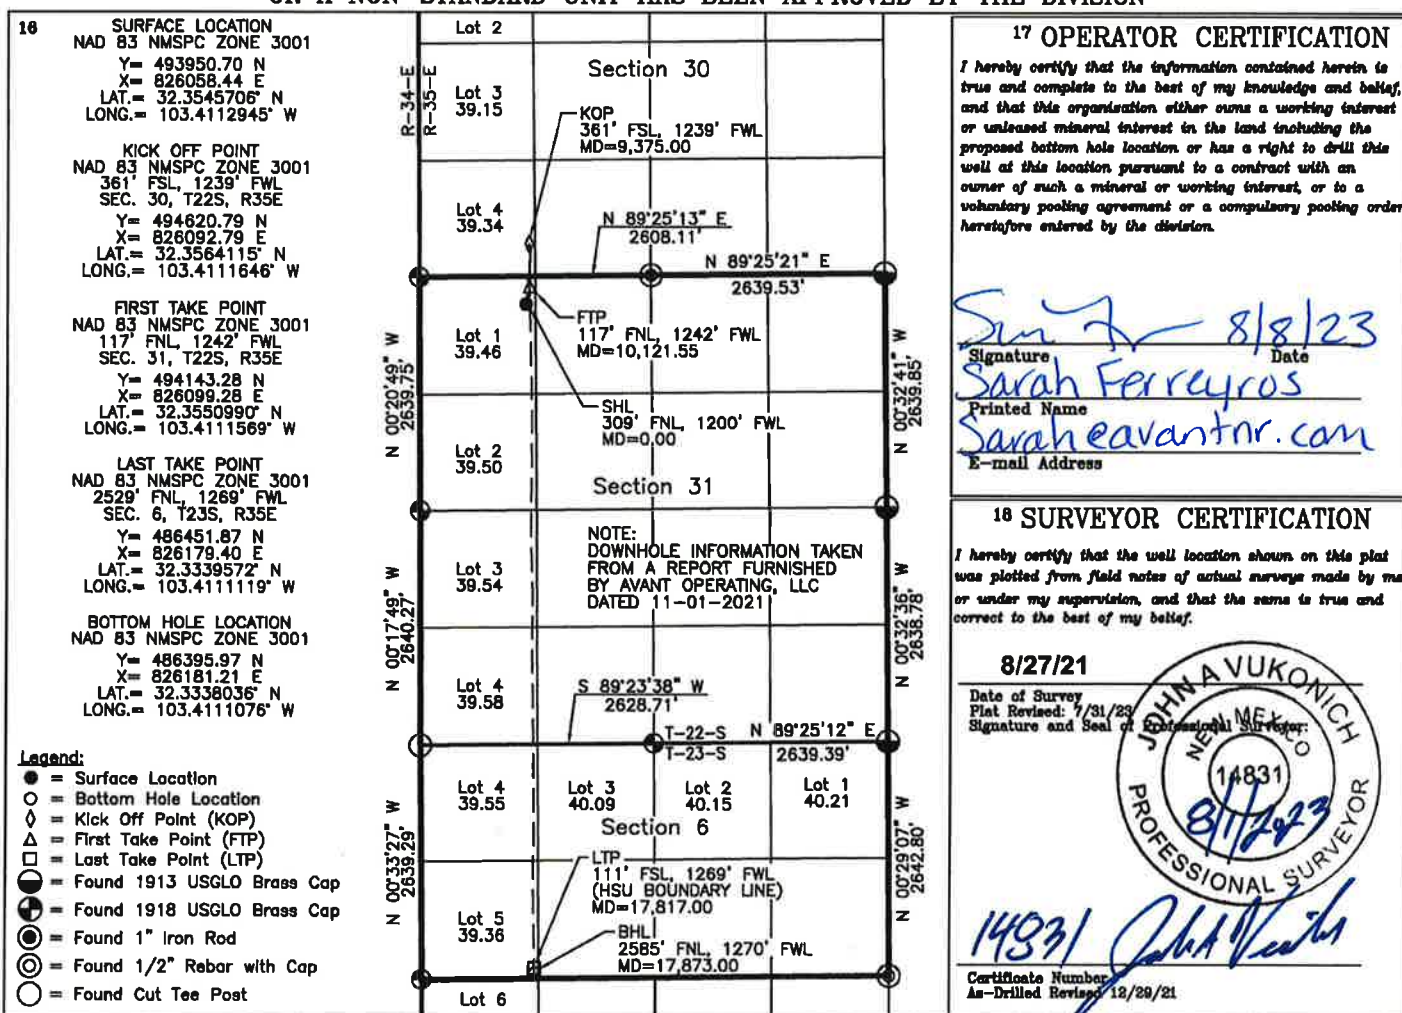 OR A NON-STANDARD UNIT HAS BEEN APPROVED BY THE DIVISION
16
SURFACE LOCATION
NAD 83 NMSPC ZONE 3001
Y= 493950.70 N
X= 826058.44 E
LAT.= 32.3545706° N
LONG.= 103.4112945° W
KICK OFF POINT
NAD 83 NMSPC ZONE 3001
361' FSL, 1239' FWL
SEC. 30, T22S, R35E
Y= 494620.79 N
X= 826092.79 E
LAT.= 32.3564115° N
LONG.= 103.4111646° W
FIRST TAKE POINT
NAD 83 NMSPC ZONE 3001
117' FNL, 1242' FWL
SEC. 31, T22S, R35E
Y= 494143.28 N
X= 826099.28 E
LAT.= 32.3550990° N
LONG.= 103.4111569° W
LAST TAKE POINT
NAD 83 NMSPC ZONE 3001
2529' FNL, 1269' FWL
SEC. 6, T23S, R35E
Y= 486451.87 N
X= 826179.40 E
LAT.= 32.3339572° N
LONG.= 103.4111119° W
BOTTOM HOLE LOCATION
NAD 83 NMSPC ZONE 3001
Y= 486395.97 N
X= 826181.21 E
LAT.= 32.3338036° N
LONG.= 103.4111076° W
Legend:
= Surface Location
= Bottom Hole Location
= Kick Off Point (KOP)
= First Take Point (FTP)
= Last Take Point (LTP)
= Found 1913 USGLO Brass Cap
= Found 1918 USGLO Brass Cap
= Found 1" Iron Rod
= Found 1/2" Rebar with Cap
= Found Cut Tee Post
Lot 2
R-34-E
R-35-E
Section 30
Lot 3
39.15
KOP
361' FSL, 1239' FWL
MD=9,375.00
Lot 4
39.34
N 89°25'13" E
2608.11'
N 89°25'21" E
2639.53'
FTP
117' FNL, 1242' FWL
MD=10,121.55
Lot 1
39.46
N 00°20'49" W
2639.75'
N 00°32'41" W
2639.85'
SHL
309' FNL, 1200' FWL
MD=0.00
Lot 2
39.50
Section 31
NOTE:
DOWNHOLE INFORMATION TAKEN
FROM A REPORT FURNISHED
BY AVANT OPERATING, LLC
DATED 11-01-2021
Lot 3
39.54
N 00°17'49" W
2640.27'
N 00°32'36" W
2638.78'
Lot 4
39.58
S 89°23'38" W
2628.71'
T-22-S
T-23-S
N 89°25'12" E
2639.39'
Lot 4
39.55
Lot 3
40.09
Lot 2
40.15
Lot 1
40.21
Section 6
N 00°33'27" W
2639.29'
N 00°29'07" W
2642.80'
LTP
111' FSL, 1269' FWL
(HSU BOUNDARY LINE)
MD=17,817.00
Lot 5
39.36
BHL
2585' FNL, 1270' FWL
MD=17,873.00
Lot 6
17 OPERATOR CERTIFICATION
I hereby certify that the information contained herein is
true and complete to the best of my knowledge and belief,
and that this organisation either owns a working interest
or unleased mineral interest in the land including the
proposed bottom hole location or has a right to drill this
well at this location pursuant to a contract with an
owner of such a mineral or working interest, or to a
voluntary pooling agreement or a compulsory pooling order
heretofore entered by the division.
8/8/23
Signature Date
Sarah Ferreyros
Printed Name
Sarah@avantnr.com
E-mail Address
18 SURVEYOR CERTIFICATION
I hereby certify that the well location shown on this plat
was plotted from field notes of actual surveys made by me
or under my supervision, and that the same is true and
correct to the best of my belief.
8/27/21
Date of Survey
Plat Revised: 7/31/23
Signature and Seal of Professional Surveyor:
JOHN A VUKONICH
NEW MEXICO
14831
PROFESSIONAL SURVEYOR
8/1/2023
14831
Certificate Number
As-Drilled Revised 12/29/21